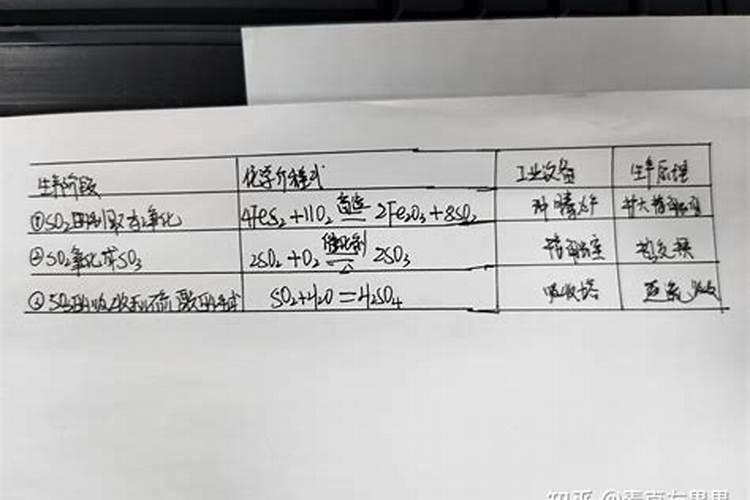 生产阶段 化学方程式 工业设备 生产原理
①SO₂的制取与净化 4FeS₂+11O₂ 高温 2Fe₂O₃+8SO₂ 沸腾炉 扩大接触面
②SO₂氧化成SO₃ 2SO₂+O₂ 催化剂 △ 2SO₃ 接触室 热交换
③SO₃的吸收 SO₃+H₂O=H₂SO₄ 吸收塔 逆流
知乎